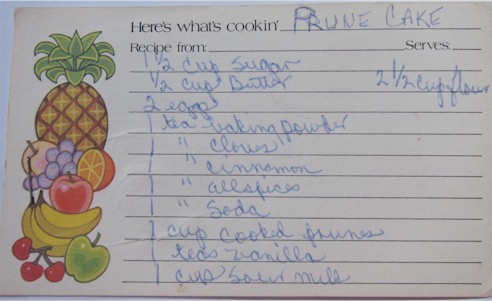 Here's what's cookin' PRUNE CAKE
Recipe from: Serves:
1 1/2 cup Sugar
1/2 cup Butter 2 1/2 cup flour
2 eggs
1 tea baking powder
1 " cloves
1 " cinnamon
1 " allspices
1 " Soda
1 cup cooked prunes
1 teas vanilla
1 cup sour milk